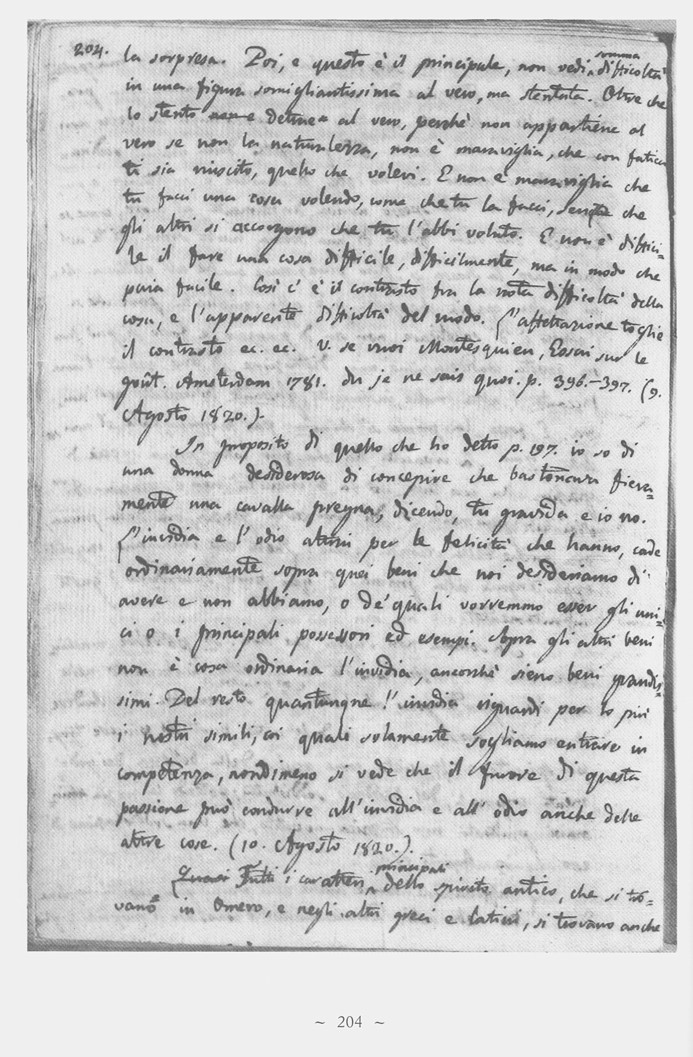 204.
la sorpresa. Poi, e questo è il principale, non vedi somma difficoltà
in una figura somigliantissima al vero, ma stentata. Oltre che
lo stento detrae al vero, perchè non appartiene al
vero se non la naturalezza, non è maraviglia, che con fatica
ti sia riuscito, quello che volevi. E non è maraviglia che
tu facci una cosa volendo, come che tu la facci, senza che
gli altri si accorgono che tu l'abbi voluto. E non è diffici-
le il fare una cosa difficile, difficilmente, ma in modo che
paia facile. Così c' è il contrasto fra la nota difficoltà della
cosa, e l'apparente difficoltà del modo. L'affettazione toglie
il contrasto ec. ec. V. se vuoi Montesquieu, Essai sur le
goût. Amsterdam 1781. du je ne sais quoi. p. 396.-397. (9.
Agosto 1820.).
In proposito di quello che ho detto p. 197. io so di
una donna desiderosa di concepire che bastonava fiera=
mente una cavalla pregna, dicendo, tu gravida e io no.
L'invidia e l' odio altrui per le felicità che hanno, cade
ordinariamente sopra quei beni che noi desideriamo di
avere e non abbiamo, o de' quali vorremmo esser gli uni=
ci o i principali possessori ed esempi. Sopra gli altri beni
non è cosa ordinaria l'invidia, ancorchè sieno beni grandis=
simi. Del resto quantunque l'invidia riguardi per lo più
i nostri simili, coi quali solamente sogliamo entrare in
competenza, nondimeno si vede che il furore di questa
passione può condurre all'invidia e all' odio anche delle
altre cose. (10. Agosto 1820.).
Quasi Tutti i caratteri principali dello spirito antico, che si tro=
vano in Omero, e negli altri greci e latini, si trovano anche
~ 204 ~